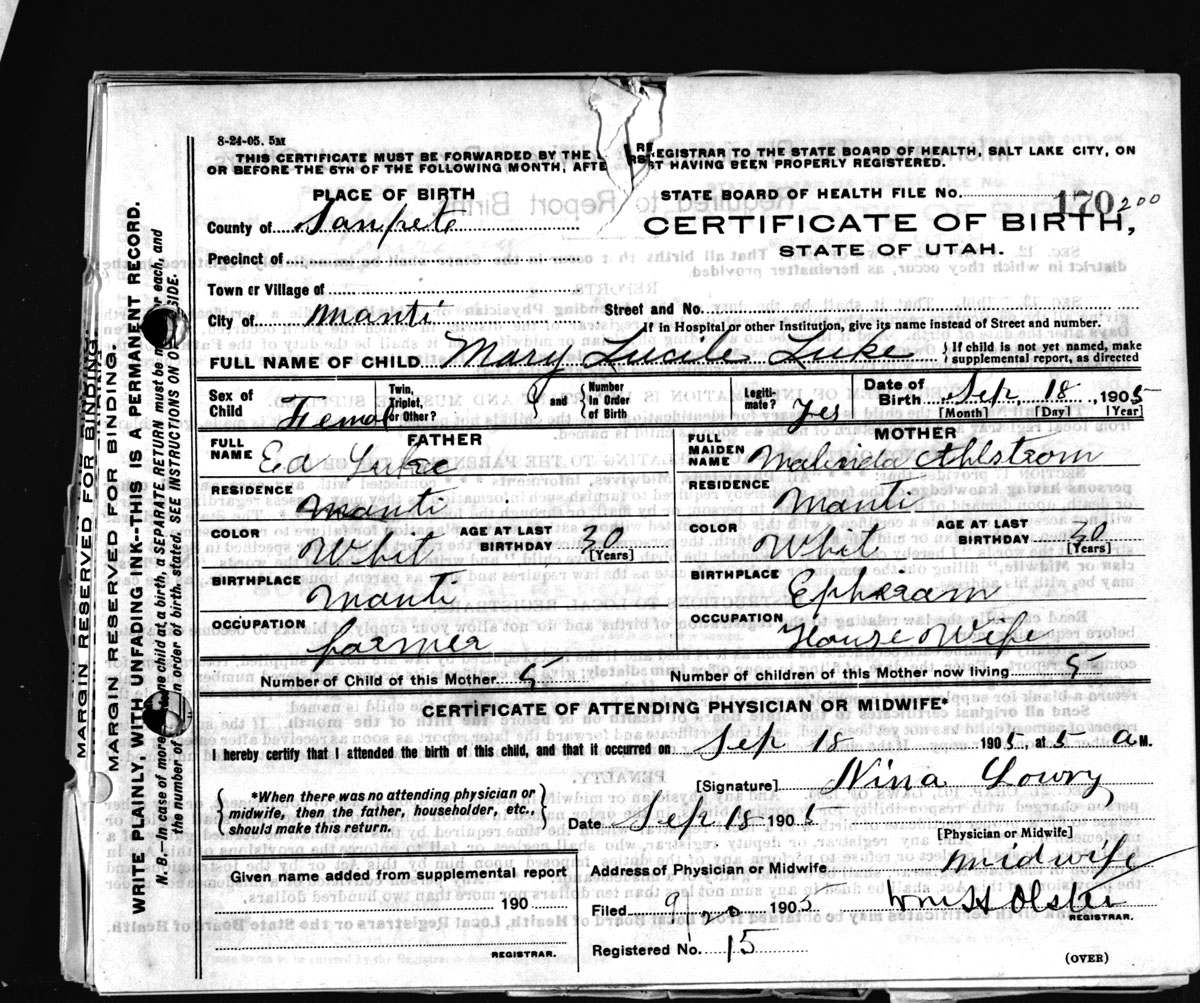 8-24-05. 5M
THIS CERTIFICATE MUST BE FORWARDED BY THE L REGISTRAR TO THE STATE BOARD OF HEALTH, SALT LAKE CITY, ON
OR BEFORE THE 5TH OF THE FOLLOWING MONTH, AFTE ST HAVING BEEN PROPERLY REGISTERED.
PLACE OF BIRTH
STATE BOARD OF HEALTH FILE No. 170 200
County of Sanpete
CERTIFICATE OF BIRTH,
STATE OF UTAH.
Precinct of
Town or Village of
City of Manti
Street and No.
If in Hospital or other Institution, give its name instead of Street and number.
FULL NAME OF CHILD Mary Lucile Luke { If child is not yet named, make supplemental report, as directed
Sex of Child Femal
Twin, Triplet, or Other? } and { Number In Order of Birth
Legiti-mate? Yes
Date of Birth Sep 18, 1905
[Month] [Day] [Year]
FATHER
FULL NAME Ed Luke
RESIDENCE Manti
COLOR Whit AGE AT LAST BIRTHDAY 30 [Years]
BIRTHPLACE Manti
OCCUPATION farmer
MOTHER
FULL MAIDEN NAME Malinda Ahlstrom
RESIDENCE Manti
COLOR Whit AGE AT LAST BIRTHDAY 30 [Years]
BIRTHPLACE Ephraam
OCCUPATION House Wife
Number of Child of this Mother 5 Number of children of this Mother now living 5
CERTIFICATE OF ATTENDING PHYSICIAN OR MIDWIFE*
I hereby certify that I attended the birth of this child, and that it occurred on Sep 18 1905, at 5 a M.
[Signature] Nina Lowry
{ *When there was no attending physician or
midwife, then the father, householder, etc.,
should make this return. }
Date Sep 18 1905
[Physician or Midwife]
Given name added from supplemental report
190
REGISTRAR.
Address of Physician or Midwife Midwife
Filed 9/20 1905 Wm H Olster
REGISTRAR.
Registered No. 15
(OVER)
MARGIN RESERVED FOR BINDING.
MARGIN RESERVED FOR BINDING.
WRITE PLAINLY, WITH UNFADING INK--THIS IS A PERMANENT RECORD.
N. B.—In case of more one child at a birth, a SEPARATE RETURN must be for each, and
the number of in order of birth stated. SEE INSTRUCTIONS ON SIDE.